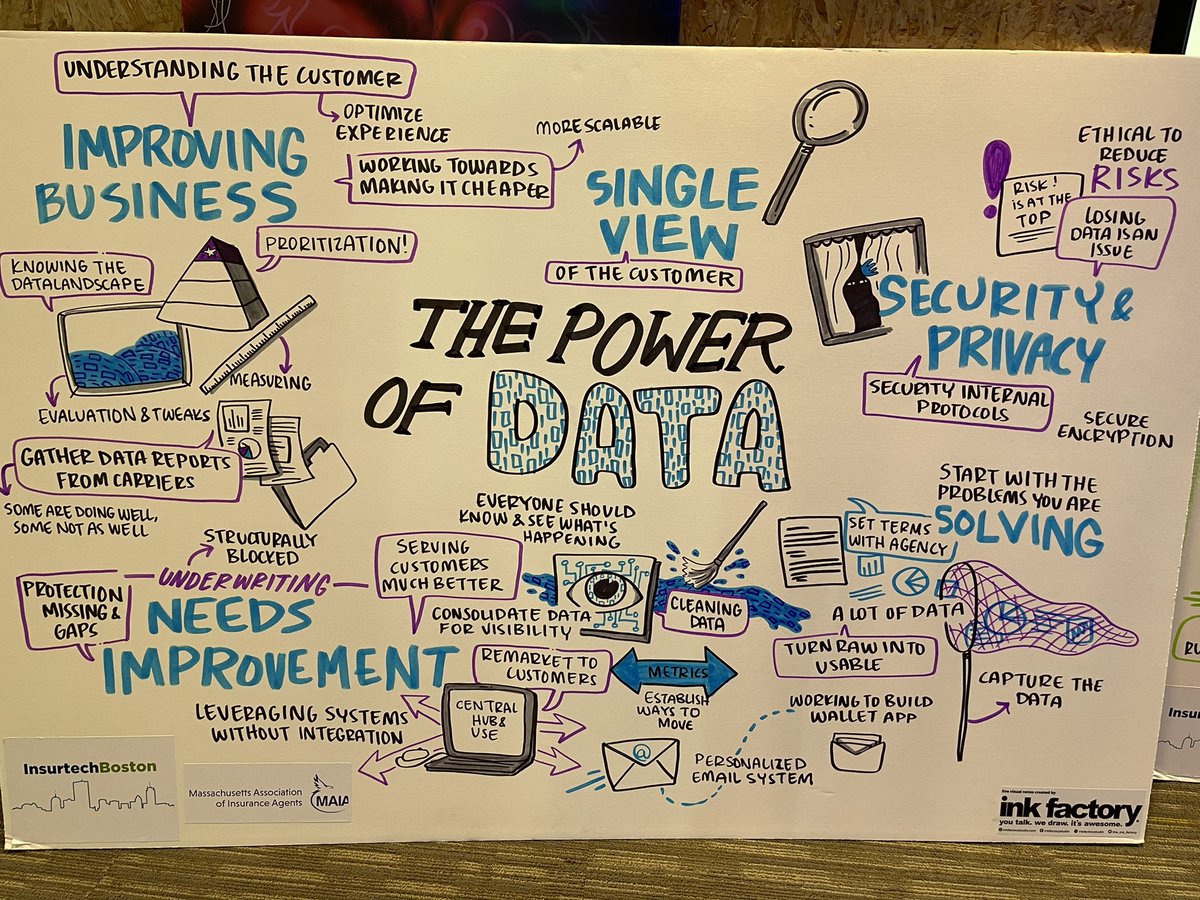 UNDERSTANDING THE CUSTOMER
OPTIMIZE
EXPERIENCE
IMPROVING
BUSINESS
WORKING TOWARDS
MAKING IT CHEAPER
MORE SCALABLE
SINGLE
VIEW
OF THE CUSTOMER
ETHICAL TO
REDUCE
RISKS
RISK!
IS AT THE
TOP
LOSING
DATA IS AN
ISSUE
SECURITY &
PRIVACY
SECURITY INTERNAL
PROTOCOLS
SECURE
ENCRYPTION
PRORITIZATION!
KNOWING THE
DATA LANDSCAPE
MEASURING
EVALUATION & TWEAKS
GATHER DATA REPORTS
FROM CARRIERS
SOME ARE DOING WELL,
SOME NOT AS WELL
THE POWER
OF DATA
STRUCTURALLY
BLOCKED
PROTECTION
MISSING &
GAPS
UNDERWRITING
NEEDS
IMPROVEMENT
SERVING
CUSTOMERS
MUCH BETTER
EVERYONE SHOULD
KNOW & SEE WHAT'S
HAPPENING
CONSOLIDATE DATA
FOR VISIBILITY
CLEANING
DATA
START WITH THE
PROBLEMS YOU ARE
SOLVING
SET TERMS
WITH AGENCY
A LOT OF DATA
TURN RAW INTO
USABLE
CAPTURE THE
DATA
REMARKET TO
CUSTOMERS
METRICS
ESTABLISH
WAYS TO
MOVE
LEVERAGING SYSTEMS
WITHOUT INTEGRATION
CENTRAL
HUB &
USE
@
PERSONALIZED
EMAIL SYSTEM
WORKING TO BUILD
WALLET APP
InsurtechBoston
Massachusetts Association
of Insurance Agents
MAIA
live visual notes created by
ink factory
you talk. we draw. it's awesome.
RU
Insurtech